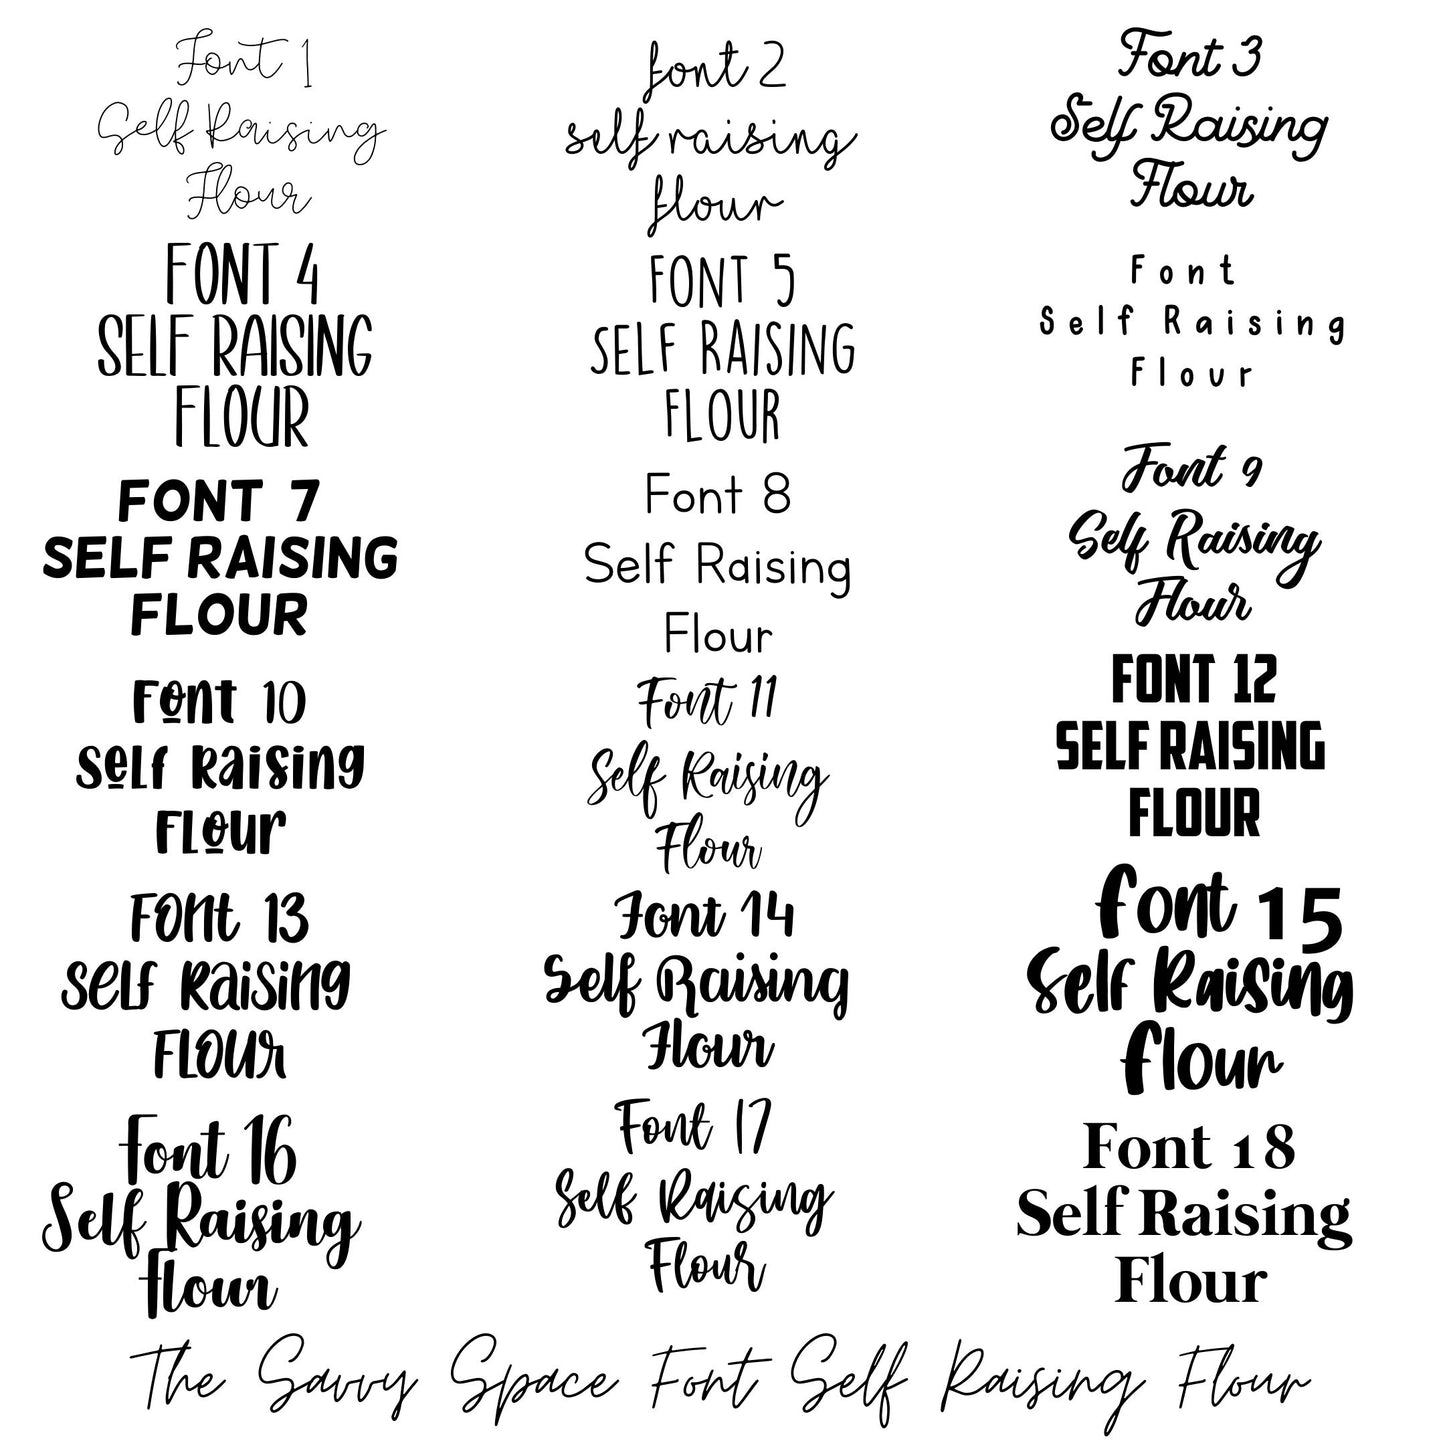 Font 1
Self Raising
Flour
font 2
self raising
flour
Font 3
Self Raising
Flour
FONT 4
SELF RAISING
FLOUR
FONT 5
SELF RAISING
FLOUR
Font
Self Raising
Flour
FONT 7
SELF RAISING
FLOUR
Font 8
Self Raising
Flour
Font 9
Self Raising
Flour
Font 10
Self Raising
Flour
Font 11
Self Raising
Flour
FONT 12
SELF RAISING
FLOUR
Font 13
Self Raising
Flour
Font 14
Self Raising
Flour
font 15
Self Raising
flour
Font 16
Self Raising
Flour
Font 17
Self Raising
Flour
Font 18
Self Raising
Flour
The Savvy Space Font Self Raising Flour